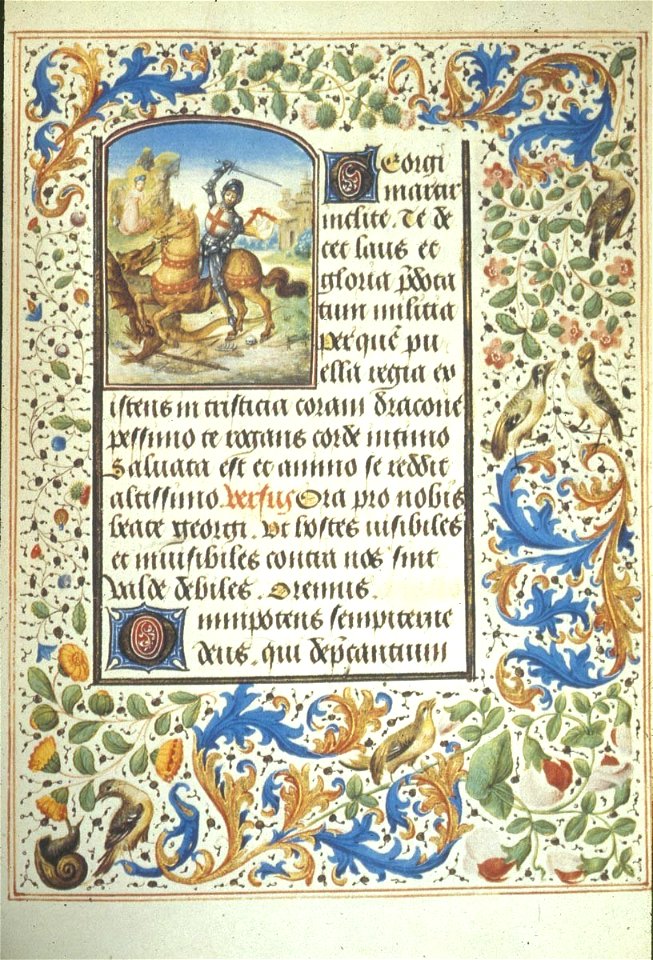 Georgi
martir
inclite. Te de
cet laus et
gloria p̄dota
tum militia
per quē pu
ella regia ex
istens in tristicia coram dracone
pessimo te rogans corde intimo
Saluata est et animo se reddit
altissimo Versus Ora pro nobis
beate georgi. Vt hostes visibiles
et inuisibiles contra nos sint
valde debiles. Oremus.
Omnipotens sempiterne
deus. qui dep̄cantium